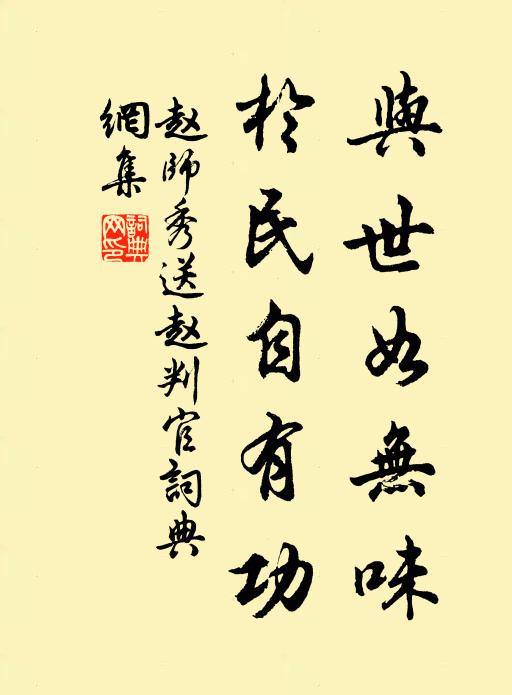 與世如無味
於民自有功
赵師秀送赵判官詞典
網集
詞典
网印